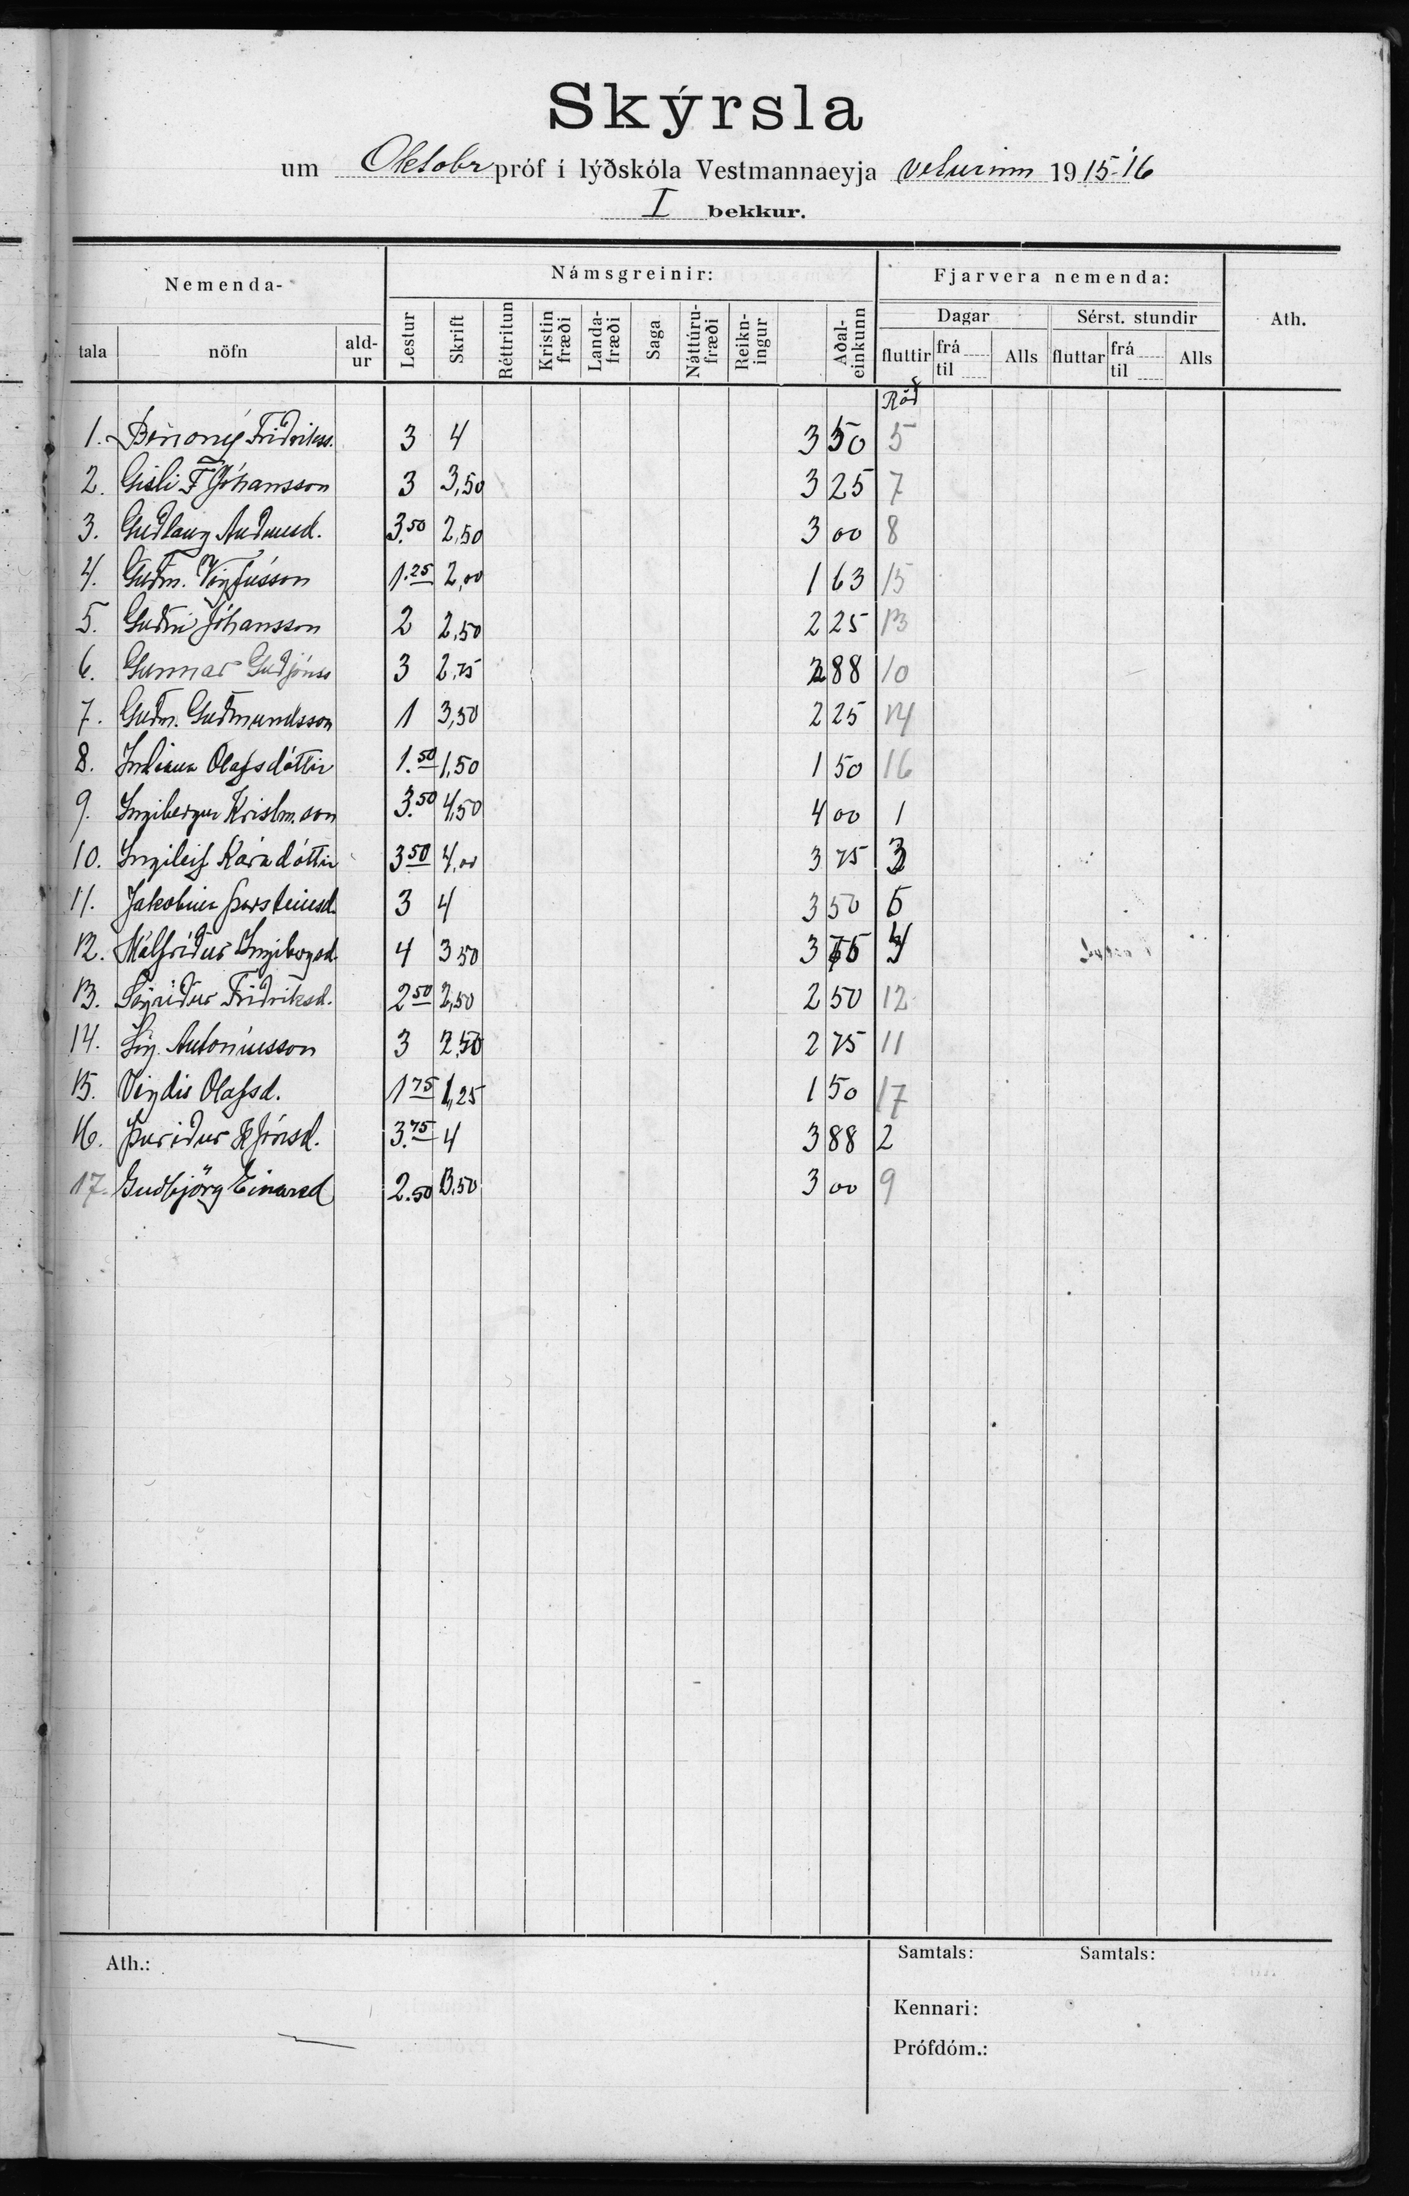 Skýrsla
um Oktobr próf í lýðskóla Vestmannaeyja veturinn 1915-'16
I bekkur.
Nemenda-
Námsgreinir:
Fjarvera nemenda:
Ath.
tala nöfn ald-ur Lestur Skrift Réttritun Kristin fræði Landa-fræði Saga Náttúru-fræði Reikn-ingur Aðal-einkunn
Dagar Sérst. stundir
fluttir frá til Alls fluttar frá til Alls
Röð
1. Benoný Friðrikss. 3 4 3 50 5
2. Gísli F Jóhansson 3 3,50 3 25 7
3. Guðlaug Auðunsd. 3.50 2,50 3 00 8
4. Guðm. Vigfússon 1.25 2,00 1 63 15
5. Guðni Jóhansson 2 2,50 2 25 13
6. Gunnar Guðjónss 3 2,75 2 88 10
7. Guðm. Guðmundsson 1 3,50 2 25 14
8. Indiana Olafsdóttir 1.50 1,50 1 50 16
9. Ingibergur Kristm.son 3.50 4,50 4 00 1
10. Ingileif Káradóttir 3 50 4,00 3 75 3
11. Jakobína Þorsteinsd. 3 4 3 50 5
12. Málfríður Ingibergsd. 4 3 50 3 75 4
13. Sigríður Friðriksd. 2 50 2,50 2 50 12
14. Sig. Antoníusson 3 2,50 2 75 11
15. Vigdís Olafsd. 1 75 1,25 1 50 17
16. Þuríður K Jónsd. 3.75 4 3 88 2
17. Guðbjörg Einarsd 2.50 3,50 3 00 9
Ath.:
Samtals: Samtals:
Kennari:
Prófdóm.: